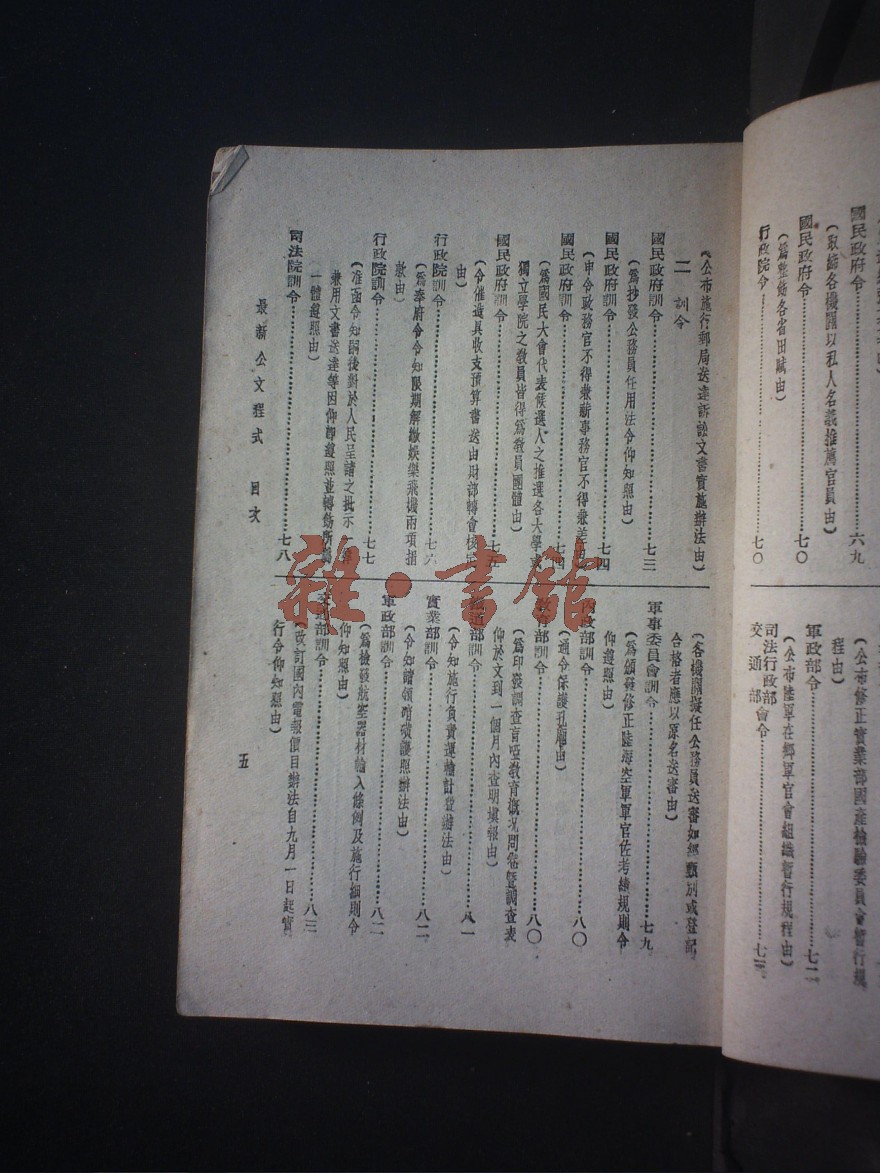 國民政府令
(取締各機關以私人名義推薦官員由)
六九
國民政府令
(為整飭各省田賦由)
七〇
行政院令
七〇
(公布修正實業部國產檢驗委員會暫行規
程由)
軍政部令
七二
(公布陸軍在鄉軍官會組織暫行規程由)
司法行政部
交通部會令
(公布施行郵局送達訴訟文書實施辦法由)
二 訓令
國民政府訓令
七三
(為抄發公務員任用法令仰知照由)
國民政府訓令
七四
(申令政務官不得兼薪事務官不得兼差
國民政府訓令
七四
(為國民大會代表候選人之推選各大學或
獨立學院之教員皆得為教員團體由)
國民政府訓令
七五
(令催造具收支預算書送由財部轉會核定
由)
行政院訓令
七六
(為奉府令令知限期解繳娛樂飛機兩項捐
款由)
行政院訓令
七七
(准函令知嗣後對於人民呈請之批示一律
兼用文書送達等因仰即遵照並轉飭所屬
一體遵照由)
司法院訓令
七八
(各機關擬任公務員送審如經甄別或登記
合格者應以原名送審由)
軍事委員會訓令
七九
(為頒發修正陸海空軍軍官佐考績規則令
仰遵照由)
內政部訓令
八〇
(通令保護孔廟由)
教育部訓令
八〇
(為印發調查盲啞教育概況問卷暨調查表
仰於文到一個月內查明填報由)
鐵道部訓令
八一
(令知施行負責運輸計費辦法由)
實業部訓令
八二
(令知請領硝磺護照辦法由)
軍政部訓令
八二
(為檢發航空器材輸入條例及施行細則令
仰知照由)
交通部訓令
八三
(改訂國內電報價目辦法自九月一日起實
行令仰知照由)
最新公文程式 目次
五
雜·書館